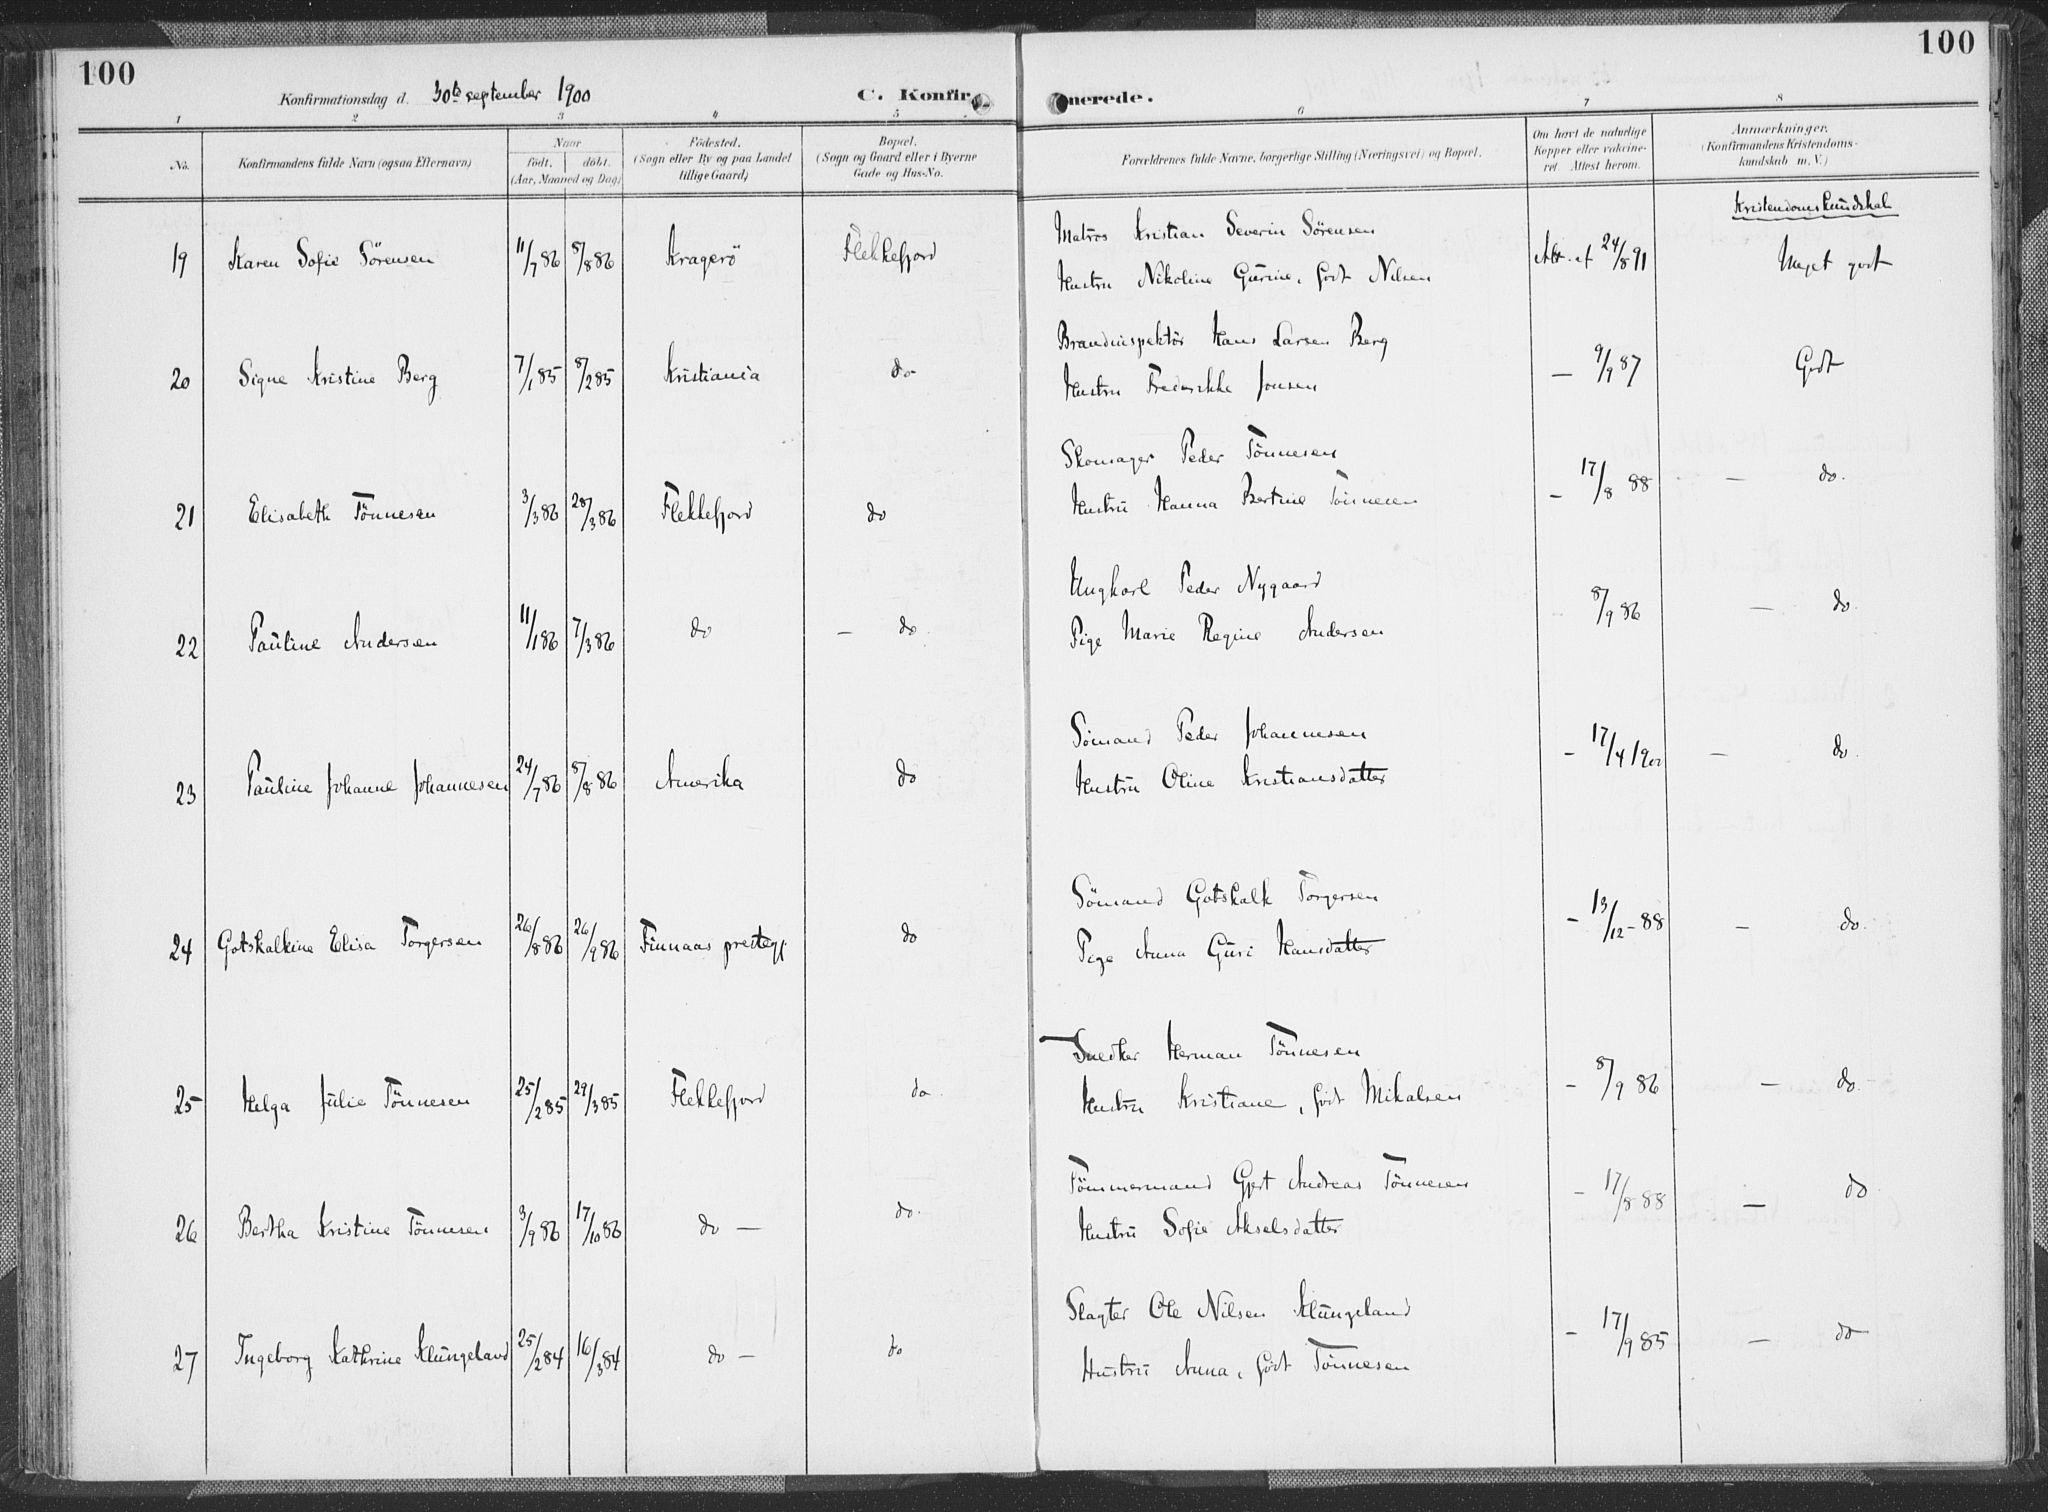 100
100
Konfirmationsdag d. 30te september 1900
C. Konfirmerede.
1 2 3 4 5 6 7 8
No.
Konfirmandens fulde Navn (ogsaa Efternavn)
Naar
født. døbt.
(Aar, Maaned og Dag)
Fødested.
(Sogn eller By og paa Landet
tillige Gaard)
Bopæl.
(Sogn og Gaard eller i Byerne
Gade og Hus-No.
Forældrenes fulde Navne, borgerlige Stilling (Næringsvei) og Bopæl.
Om havt de naturlige
Kopper eller vakcine-
ret. Attest herom.
Anmærkninger.
(Konfirmandens Kristendoms-
kundskab m. V.)
Kristendomskundskab
19 Karen Sofie Sörensen 11/7 86 8/8 86 Kragerö Flekkefjord
Matros Kristian Severin Sörensen
Hustru Nikoline Gurine, født Nilsen
Att. af 24/8 91 Meget godt
20 Signe Kristine Berg 7/1 85 8/2 85 Kristiania do
Brandinspektör Hans Larsen Berg
Hustru Frederikke Jonsen
— 9/9 87 Godt
21 Elisabeth Tönnesen 3/3 86 28/3 86 Flekkefjord do
Skomager Peder Tönnesen
Hustru Hanna Bertine Tönnesen
— 17/8 88 — do.
22 Pauline Andersen 11/1 86 7/3 86 do — do.
Ungkarl Peder Nygaard
Pige Marie Regine Andersen
8/9 86 — do.
23 Pauline Johanne Johannesen 24/7 86 8/8 86 Amerika do
Sömand Peder Johannesen
Hustru Oline Kristiansdatter
— 17/4 1900 — do.
24 Gotskalkine Elisa Torgersen 26/8 86 26/9 86 Finnaas prestegj. do
Sömand Gotskalk Torgersen
Pige Anna Guri Hansdatter
— 13/12 - 88 — do.
25 Helga Julie Tönnesen 25/2 85 29/3 85 Flekkefjord do.
Snedker Herman Tönnesen
Hustru Kristiane, født Mikalsen
— 8/9 86 — do.
26 Bertha Kristine Tönnesen 3/9 86 17/10 86 do — do.
Tömmermand Gjert Andreas Tönnesen
Hustru Sofie Akselsdatter
— 17/8 88 — do
27 Ingeborg Kathrine Klungeland 25/2 84 16/3 84 do — do
Slagter Ole Nilsen Klungeland
Hustru Anna, født Tönnesen
— 17/9 85 — do